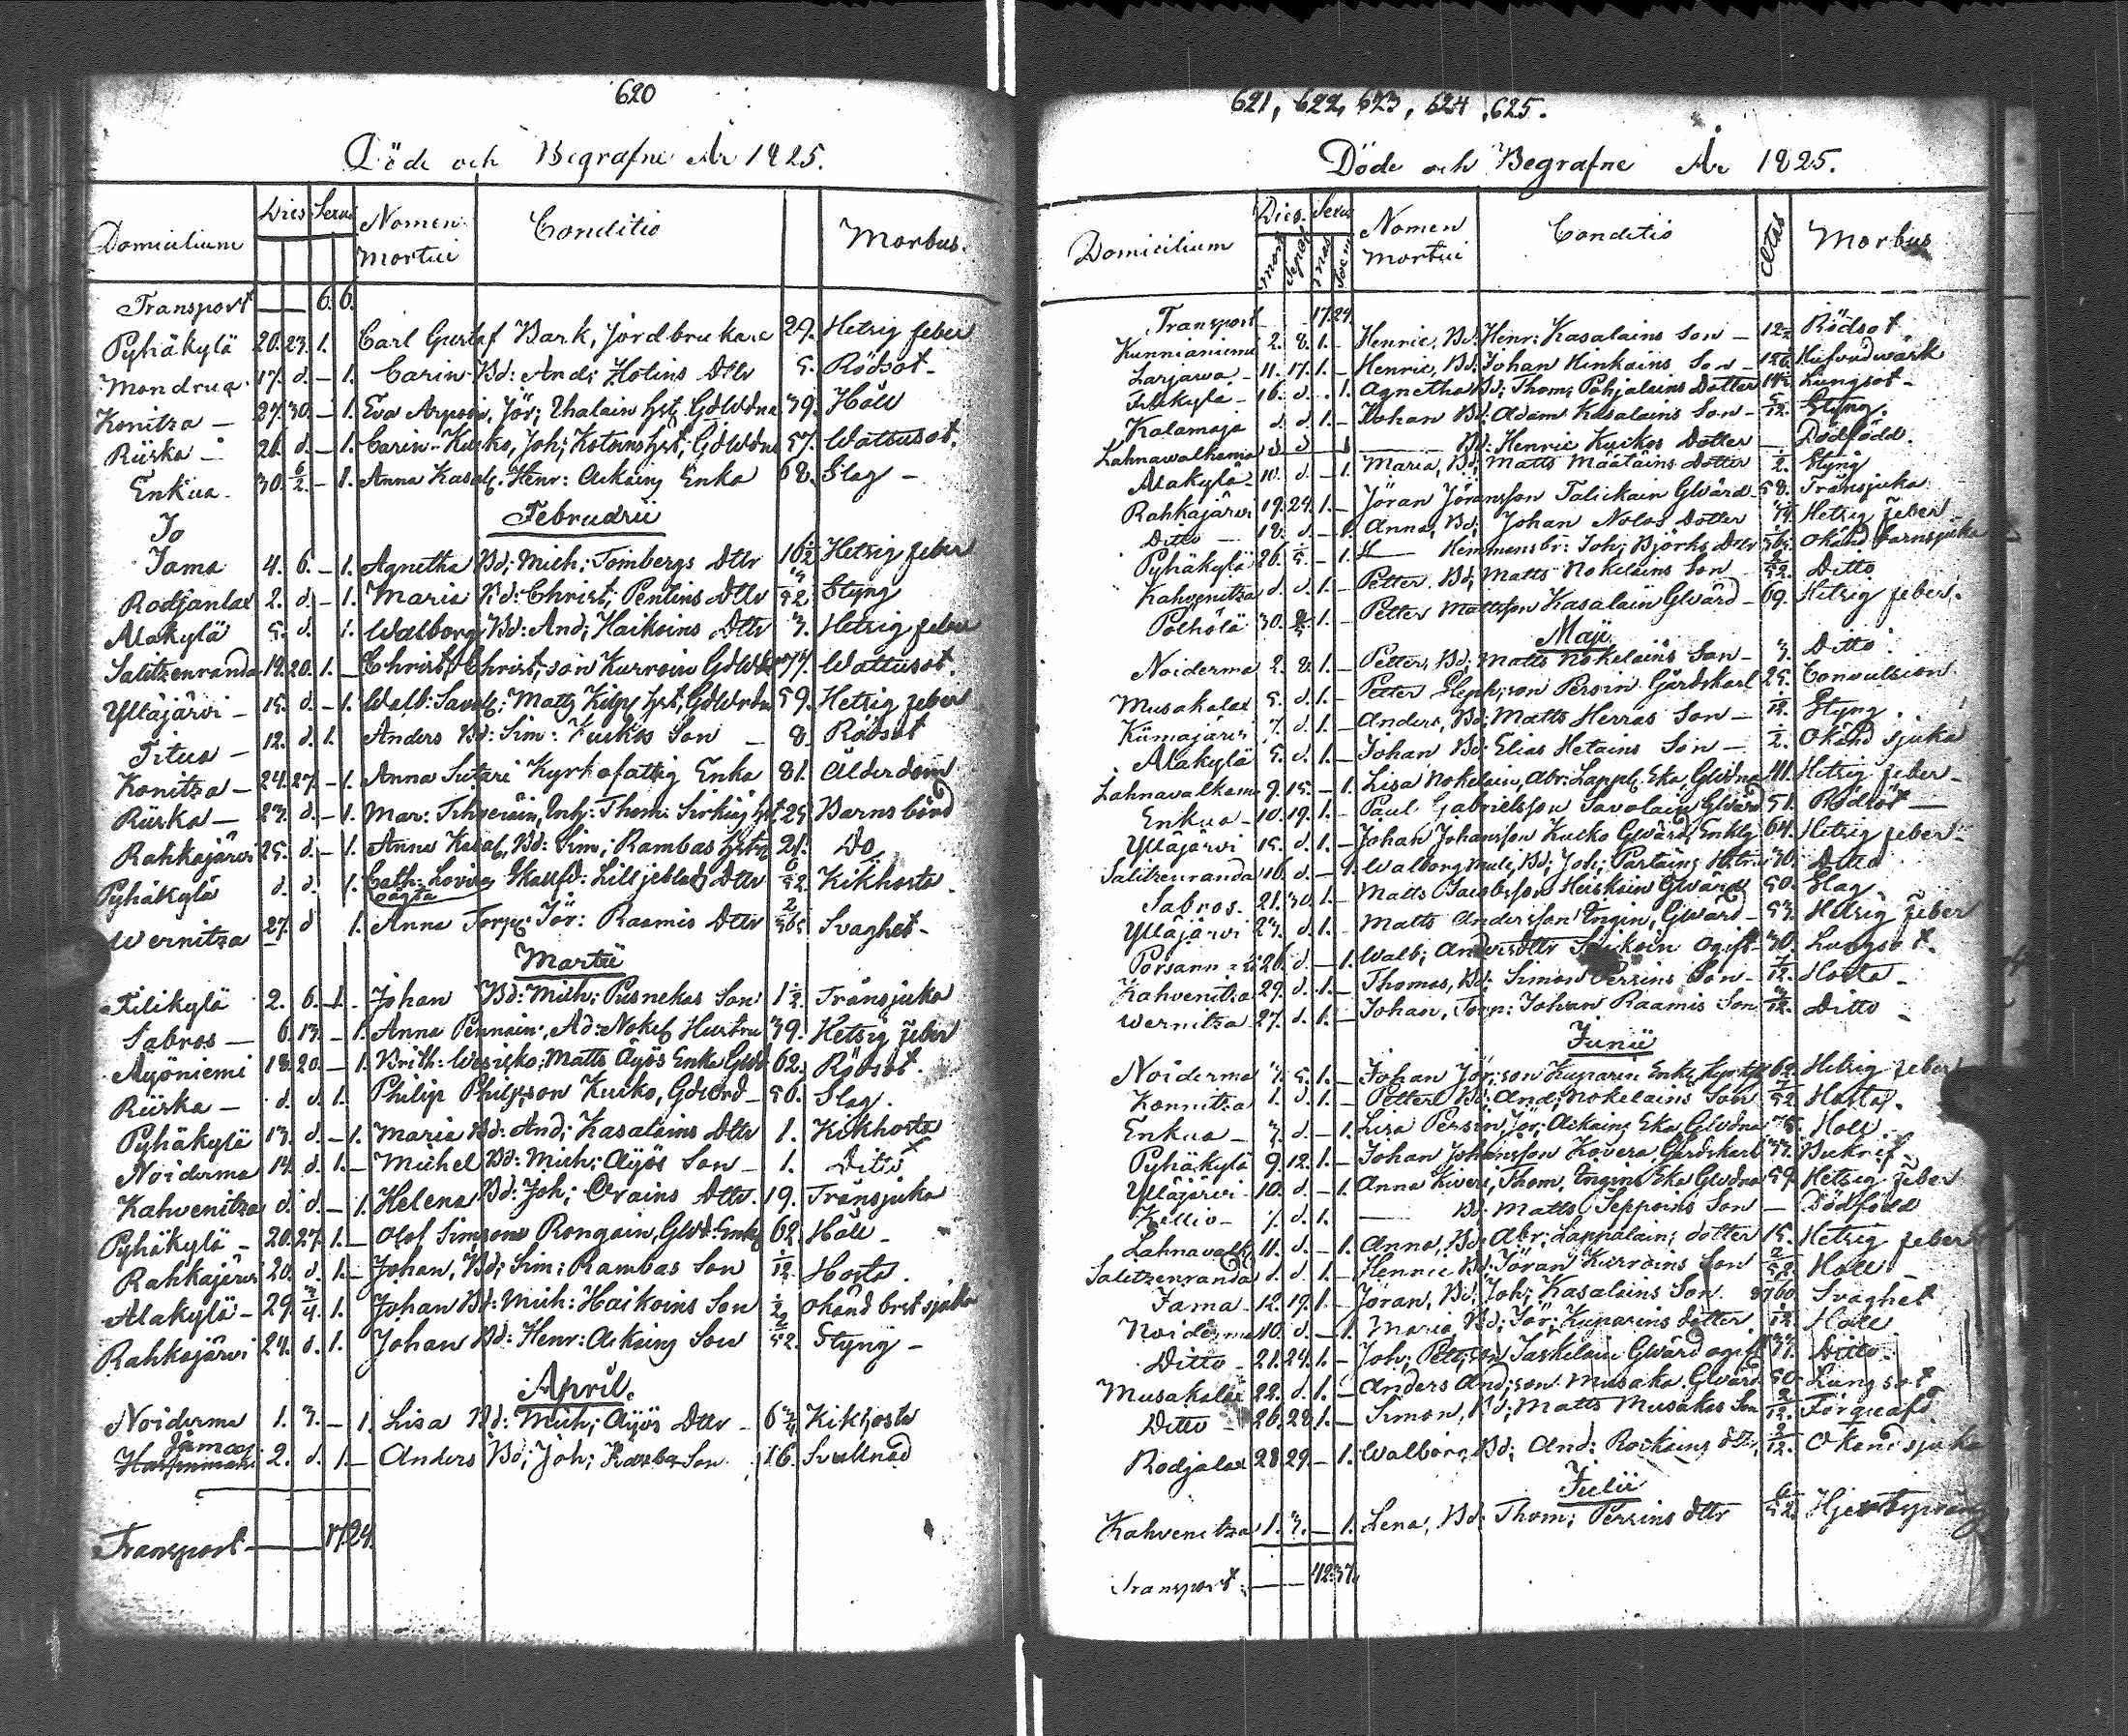 620
Döde och Begrafne År 1825.
Domicilium Dies Sexus Nomen Mortui Conditio Morbus.
Transport — 6. 6.
Pyhäkylä 20. 23. 1. Carl Gustaf Bark, Jordbrukare 27. Hetsig feber
Mondrua 17. d. — 1. Carin Bd: And; Hotins Dttr 5. Rödsot
Konitza — 27. 30. — 1. Eva Jör; Gdwdna 39. Håll
Riiska — 26. d. — 1. Carin Kucko, Joh; Gdwdna 57. Wattusot.
Enkua 30. 6/2. — 1. Anna Kasal; Henr: Ackains Enka 68. Slag —
Februarii
Jo
Jama 4. 6. — 1. Agnetha Bd; Mich; Tombergs Dttr 16 1/2 Hetsig feber
Rodjanlax 2. d. — 1. Maria Bd: Christ; Pentins Dttr Styng
Alakylä 5. d. 1. Walborg Bd: And; Haikoins Dttr 3. Hetsig feber
Salitzenranda 19. 20. 1. — Christ; Christ;son Kurroin 77. Wattusot.
Ylläjärvi — 15. d. — 1. Walb: Matts Gdwdna 59. Hetsig feber
Titua — 12. d. 1. Anders Bd: Sim: Kuckos Son — 8. Rödsot
Konitza — 24. 27. — 1. Anna Sutari Kyrkofattig Enka 81. Ålderdom
Riiska — 23. d. — 1. Mar: Thom: 25. Barnsbörd
Rahkajärvi 25. d. — 1. Anna Kasal; Bd: Sim; Rambas Hstr 21. Do
Pyhäkylä d. d. 1. Cath: Lovisa Lilljeblads Dttr 6/52. Kikhosta
oägta
Wernitza 27. d 1. Anna Torp; Jör: Raamis Dttr 2/365 Svaghet —
Martii
Tilikylä 2. 6. 1. Johan Bd: Mich; Pusnekas Son 1 1/2. Trånsjuka
Sabros — 6. 13. — 1. Anna Pennain; Ad: Nokel; Hustru 39. Hetsig feber
Äyöniemi 18. 20. — 1. Brith: Matts Äyös Enka 62. Rödsot.
Riiska — d. d. 1. Philip Philipson Kucko, Gdvärd — 56. Slag.
Pyhäkylä 13. d. — 1. Maria Bd: And; Kasalains Dttr 1. Kikhosta
Noiderma 14. d. 1. — Michel Bd: Mich; Äyös Son — 1. Ditto
Kahvenitza d. d. — 1. Helena Bd: Joh; Orains Dttr. 19. Trånsjuka
Pyhäkylä — 20. 27. 1. — Olof Simson Rongain, 62. Håll —
Rahkajärvi 20. d. 1. — Johan, Bd; Sim; Rambas Son 1/12. Hosta.
Alakylä — 29. 3/4. 1. Johan Bd: Mich: Haikoins Son 1/2 okänd brstsjuka
Rahkajärvi 24. d. 1. Johan Bd: Henr: Ackains Son 2/52. Styng —
April.
Noiderma 1. 3. — 1. Lisa Bd: Mich; Äyös Dttr — 6 3/4 Kikhosta
Jama 2. d. 1. — Anders Bd; Joh; Ramba Son 16. Svullnad
Transport — 17 24.
621, 622, 623, 624, 625.
Döde och Begrafne År 1825.
Domicilium Dies. Sexus Nomen Mortui Conditio Ætas Morbus
Transport — 17. 24.
Kunnianiemi 2. 8. 1. — Henric, Bd: Henr: Kasalains Son — Rödsot
Larjawa — 11. 17. 1. — Henric, Bd: Johan Hinkains Son — Hufvudwärk
Tilikylä — 16. d. . 1. Agnetha Bd; Thom; Pohjalains Dotter Lungsot —
Kalamaja d. d. 1. — Johan Bd: Adam Kasalains Son — 5/12. Styng.
Lahnawalkama d d — 1 Bd: Henric Kuckos Dotter — Dödfödd.
Alakylä — 10. d. — 1. Maria, Bd; Matts Määtäins Dotter 1/2. Styng
Rahkajärvi 19. 24. 1. — Jöran Jöransson Talickain Gwärd 58. Trånsjuka
Ditto — 18. d. — 1. Anna, Bd; Johan Nolos Dotter Hetsig feber
Pyhäkylä 26. — 1. Hemmansbr: Joh; Björks Dttr okänd barnsjuka
Kahvenitza d. d. 1. — Petter Bd; Matts Nokelains Son 2/52. Ditto
Polhölä 30. 1. — Petter Mattsson Kasalain Gwärd — 69. Hetsig feber.
Maji
Noiderma 2. 8. 1. — Petter, Bd; Matts Nokelains Son — 3. Ditto
Musakalax 5. d. 1. — Petter Steph;son Persin Gårdskarl 25. Convulsion
Kiimajärvi 7. d. 1. — Anders, Bd: Matts Herras Son — 1/12. Styng.
Alakylä 5. d. 1. — Johan Bd: Elias Hetains Son — 1/2. Okänd sjuka
Lahnavalkama 9. 15. — 1. Lisa Nokelain, Abr: Lappal; Eka, Gwdna 41. Hetsig feber —
Enkua — 10. 19. 1. — Paul Gabrielsson Savolain Gwärd 51. Rödsot —
Ylläjärvi 15. d. 1. — Johan Johansson Kucko Gwärd, Enkl; 64. Hetsig feber
Salitzenranda 16. d. — 1. Walborg Bd; Joh; Partains Hstru 30. Ditto
Sabros. 21. 30. 1. — Matts Jacobsson Heiskoin Gwärd 50. Slag.
Ylläjärvi 23. d. 1. — Matts Andersson Engin, Gwärd — 53. Hetsig feber
26. d. — 1. Walb; Andersdttr ogift — 30. Lungsot.
Kahvenitza 29. d. 1. — Thomas, Bd; Simon Persins Son — 1/12. Hosta —
Wernitza 27. d. 1. — Johan, Torp: Johan Raamis Son 3/12. Ditto —
Junii
Noiderma 3. 5. 1. — Johan Jör;son Kuparin 62. Hetsig feber
Konnitza 1. d. 1. — Petter Bd: And; Nokelains Son Hosta.
Enkua — 3. d. — 1. Lisa Persin, Jör; Ackains Eka Gwdna 75. Håll
Pyhäkylä 9. 12. 1. — Johan Johansson Kovera, Gårdskarl 33. Bukref —
Ylläjärvi 10. d. — 1. Anna Kiveri, Thom; Engins Eka Gwdna 59. Hetsig feber
Kellio — 7. d. 1. — Bd: Matts Seppoins Son — Dödfödd
Lahnavalk; 11. d. — 1. Anna, Bd; Abr; Lappalains dotter 15. Hetsig feber
Salitzenranda d. d. 1. — Henric Bd: Jöran Kurroins Son 2/52. Håll
Jama — 12. 19. 1. — Jöran, Bd; Joh; Kasalains Son. Svaghet
Noiderma 10. d. — 1. Maria, Bd; Jör; Kuparins dotter. 1/12. Håll
Ditto — 21. 24. 1. — Joh; Pett;son Taskelain Gwärd ogift Ditto.
Musakalax 22. d. 1. — Anders And;son Musaka Gwärd 50. Lungsot
Ditto — 26. 28. 1. — Simon, Bd; Matts Musakas Son 2/12. Förqvafd
Rodjalax 28. 29. — 1. Walborg, Bd; And: Rockains dttr, 2/12. Okänd sjuka
Julii
Kahvenitza 1. 3. — 1. Lena, Bd; Thom; Persins dttr 6/52. Hjertsprång
Transport. — 42. 37.